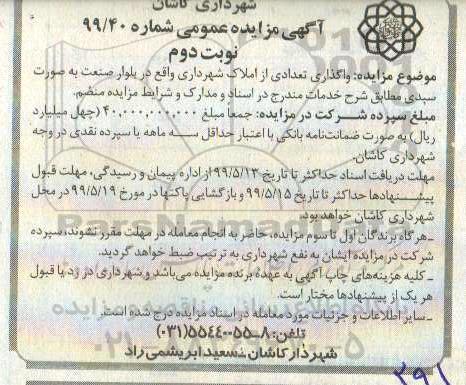 شهرداری کاشان
آگهی مزایده عمومی شماره ۹۹/۴۰
نوبت دوم
موضوع مزایده: واگذاری تعدادی از املاک شهرداری واقع در بلوار صنعت به صورت
سبدی مطابق شرح خدمات مندرج در اسناد و مدارک و شرایط مزایده منضم.
مبلغ سپرده شرکت در مزایده: جمعاً مبلغ ۴۰,۰۰۰,۰۰۰,۰۰۰ (چهل میلیارد
ریال) به صورت ضمانت‌نامه بانکی با اعتبار حداقل سه ماهه یا سپرده نقدی در وجه
شهرداری کاشان.
مهلت دریافت اسناد حداکثر تا تاریخ ۹۹/۵/۱۳ از اداره پیمان و رسیدگی، مهلت قبول
پیشنهادها حداکثر تا تاریخ ۹۹/۵/۱۵ و بازگشایی پاکتها در مورخ ۹۹/۵/۱۹ در محل
شهرداری کاشان خواهد بود.
ـ هرگاه برندگان اول تا سوم مزایده، حاضر به انجام معامله در مهلت مقرر نشوند، سپرده
شرکت در مزایده ایشان به نفع شهرداری به ترتیب ضبط خواهد گردید.
ـ کلیه هزینه‌های چاپ آگهی به عهده برنده مزایده می‌باشد و شهرداری در رد یا قبول
هر یک از پیشنهادها مختار است.
ـ سایر اطلاعات و جزئیات مورد معامله در اسناد مزایده درج شده است.
تلفن: ۸-۵۵۴۴۰۰۵۵ (۰۳۱)
شهردار کاشان: سعید ابریشمی راد
۲۹۱